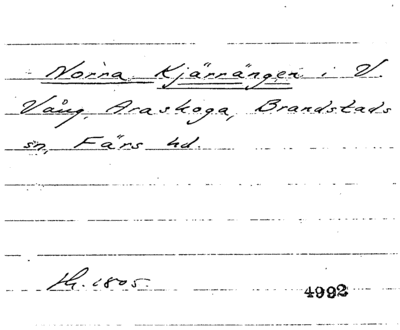 Norra Kjärrängen i V.
Vång, Araskoga, Brandstads
sn, Färs hd.
1805.
4992